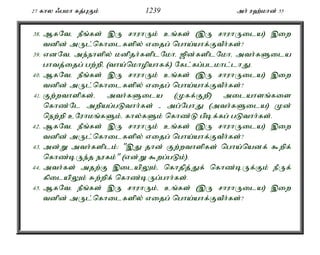 27 காலஃபமா கத்புகும் 1239 அர் ரஹ்மான் 55
38. ஆகவே, நீங்கள் இரு சாராரும் உங்கள் (இரு சாராருடைய) இறை
வனின் அருட்கொடைகளில் எதைப் பொய்யாக்குவீர்கள்?
39. எனவே, அந்நாளில் மனிதர்களிடமோ, ஜின்களிடமோ, அவர்களுடைய
பாவத்தைப் பற்றி (வாய்மொழியாகக்) கேட்கப்படமாட்டாது.
40. ஆகவே, நீங்கள் இரு சாராரும் உங்கள் (இரு சாராருடைய) இறை
வனின் அருட்கொடைகளில் எதைப் பொய்யாக்குவீர்கள்?
41. குற்றவாளிகள், அவர்களுடைய (முகக்குறி) அடையாளங்களை
கொண்டே அறியப்படுவார்கள் - அப்போது (அவர்களுடைய) முன்
நெற்றி உரோமங்களும், கால்களும் கொண்டு பிடிக்கப் படுவார்கள்.
42. ஆகவே, நீங்கள் இரு சாராரும் உங்கள் (இரு சாராருடைய) இறை
வனின் அருட்கொடைகளில் எதைப் பொய்யாக்குவீர்கள்?
43. அன்று அவர்களிடம்: "இது தான் குற்றவாளிகள் பொய்யெனக் கூறிக்
கொண்டிருந்த நரகம்" (என்று கூறப்படும்).
44. அவர்கள் அதற்கு இடையிலும், கொதித்துக் கொண்டிருக்கும் நீருக்
கிடையிலும் சுற்றிக் கொண்டிருப்பார்கள்.
45. ஆகவே, நீங்கள் இரு சாராரும், உங்கள் (இரு சாராருடைய) இறை
வனின் அருட்கொடைகளில் எதைப் பொய்யாக்குவீர்கள்?